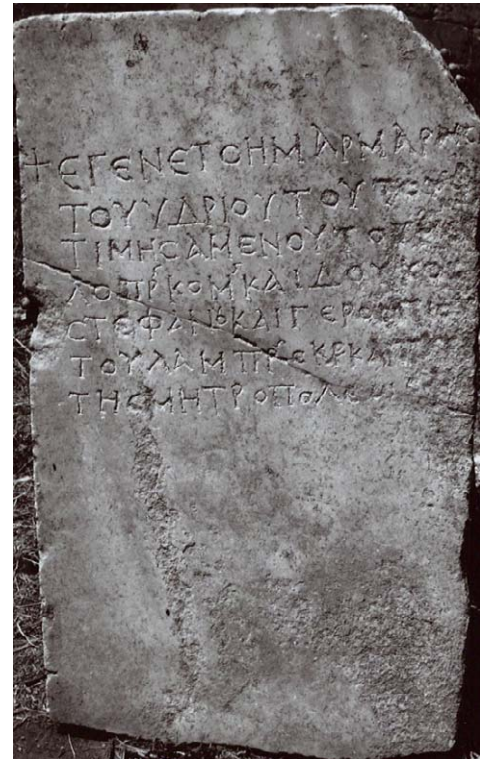 + ΕΓΕΝΕΤΟΗΜΑΡΜΑΡΗC
ΤΟΥΥΔΡΙΟΥΤΟΥΤΟΥ
ΤΙΜΗCΑΜΕΝΟΥΤΟΥ
ΛΟΠΡΚΟΜΚΑΙΔΟΥΚΟC
CΤΕΦΑΝȣΚΑΙΓΕΡΟΝΤΙ
ΤΟΥΛΑΜΠΡΕΚΡΚΑΙΠ
ΤΗCΜΗΤΡΟΠΟΛΕΩC